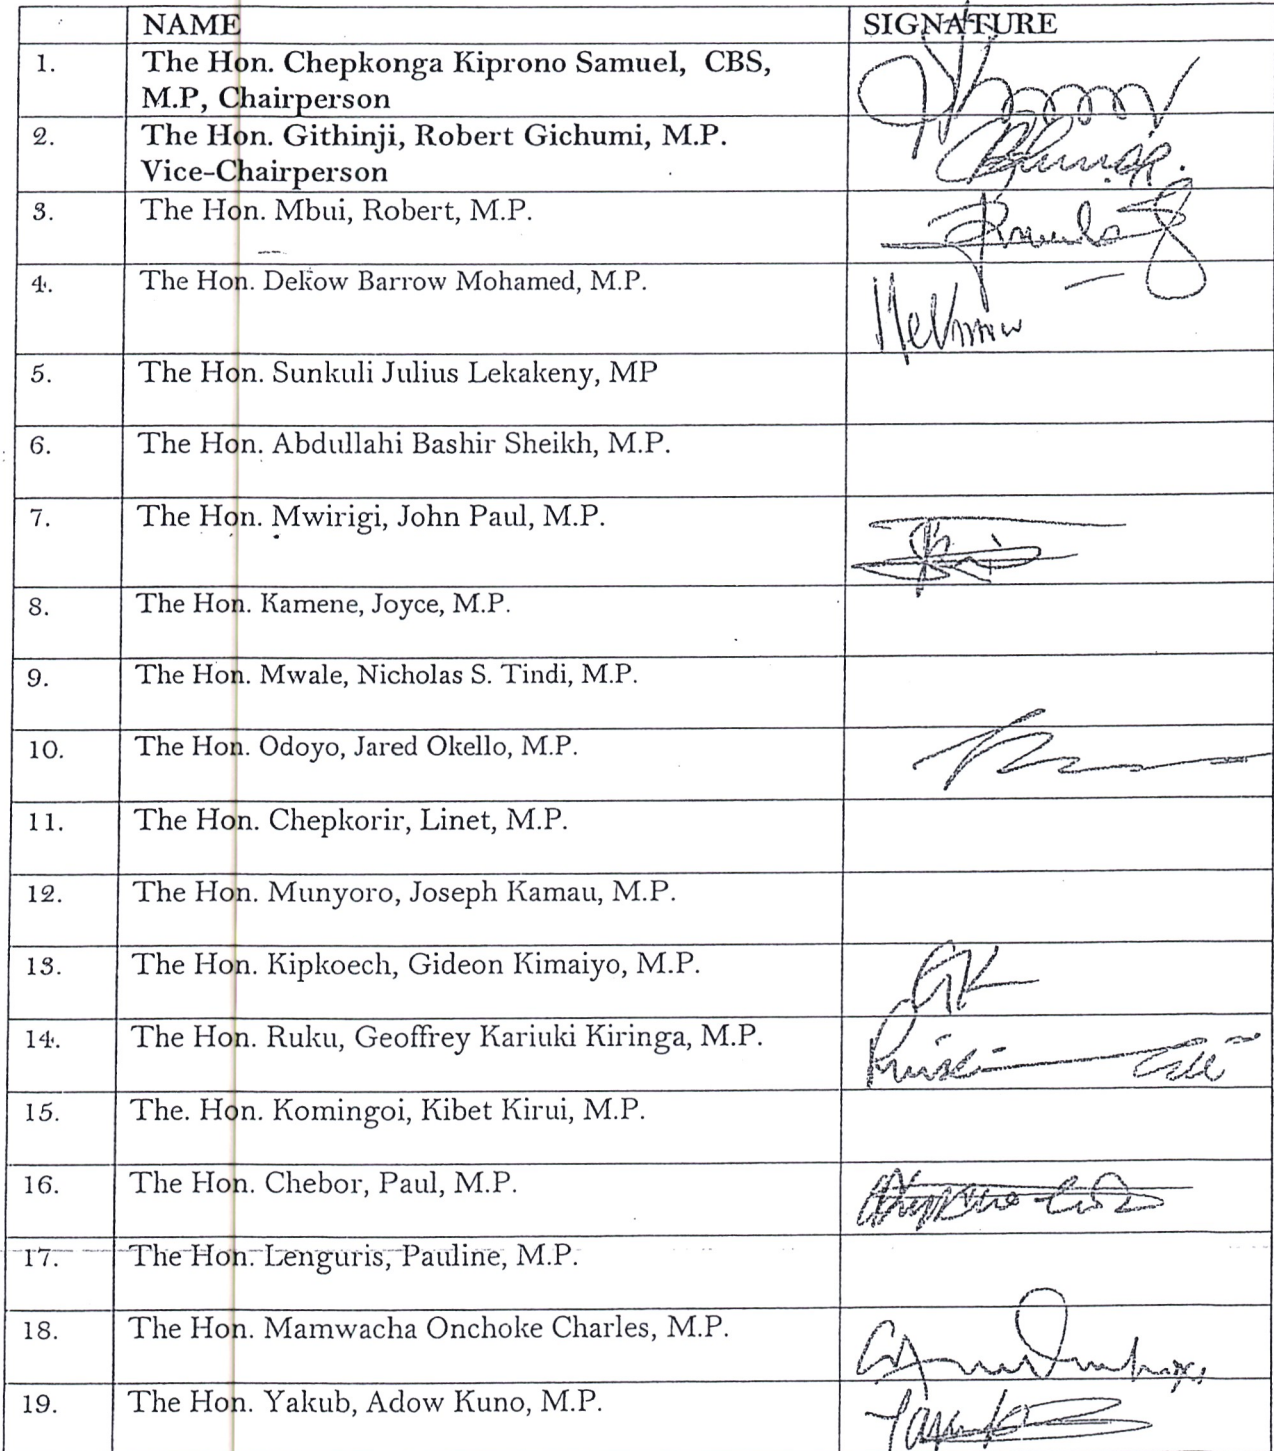 NAME SIGNATURE
1. The Hon. Chepkonga Kiprono Samuel, CBS,
M.P, Chairperson
2. The Hon. Githinji, Robert Gichumi, M.P.
Vice-Chairperson
3. The Hon. Mbui, Robert, M.P.
4. The Hon. Dekow Barrow Mohamed, M.P.
5. The Hon. Sunkuli Julius Lekakeny, MP
6. The Hon. Abdullahi Bashir Sheikh, M.P.
7. The Hon. Mwirigi, John Paul, M.P.
8. The Hon. Kamene, Joyce, M.P.
9. The Hon. Mwale, Nicholas S. Tindi, M.P.
10. The Hon. Odoyo, Jared Okello, M.P.
11. The Hon. Chepkorir, Linet, M.P.
12. The Hon. Munyoro, Joseph Kamau, M.P.
13. The Hon. Kipkoech, Gideon Kimaiyo, M.P.
14. The Hon. Ruku, Geoffrey Kariuki Kiringa, M.P.
15. The. Hon. Komingoi, Kibet Kirui, M.P.
16. The Hon. Chebor, Paul, M.P.
17. The Hon. Lenguris, Pauline, M.P.
18. The Hon. Mamwacha Onchoke Charles, M.P.
19. The Hon. Yakub, Adow Kuno, M.P.